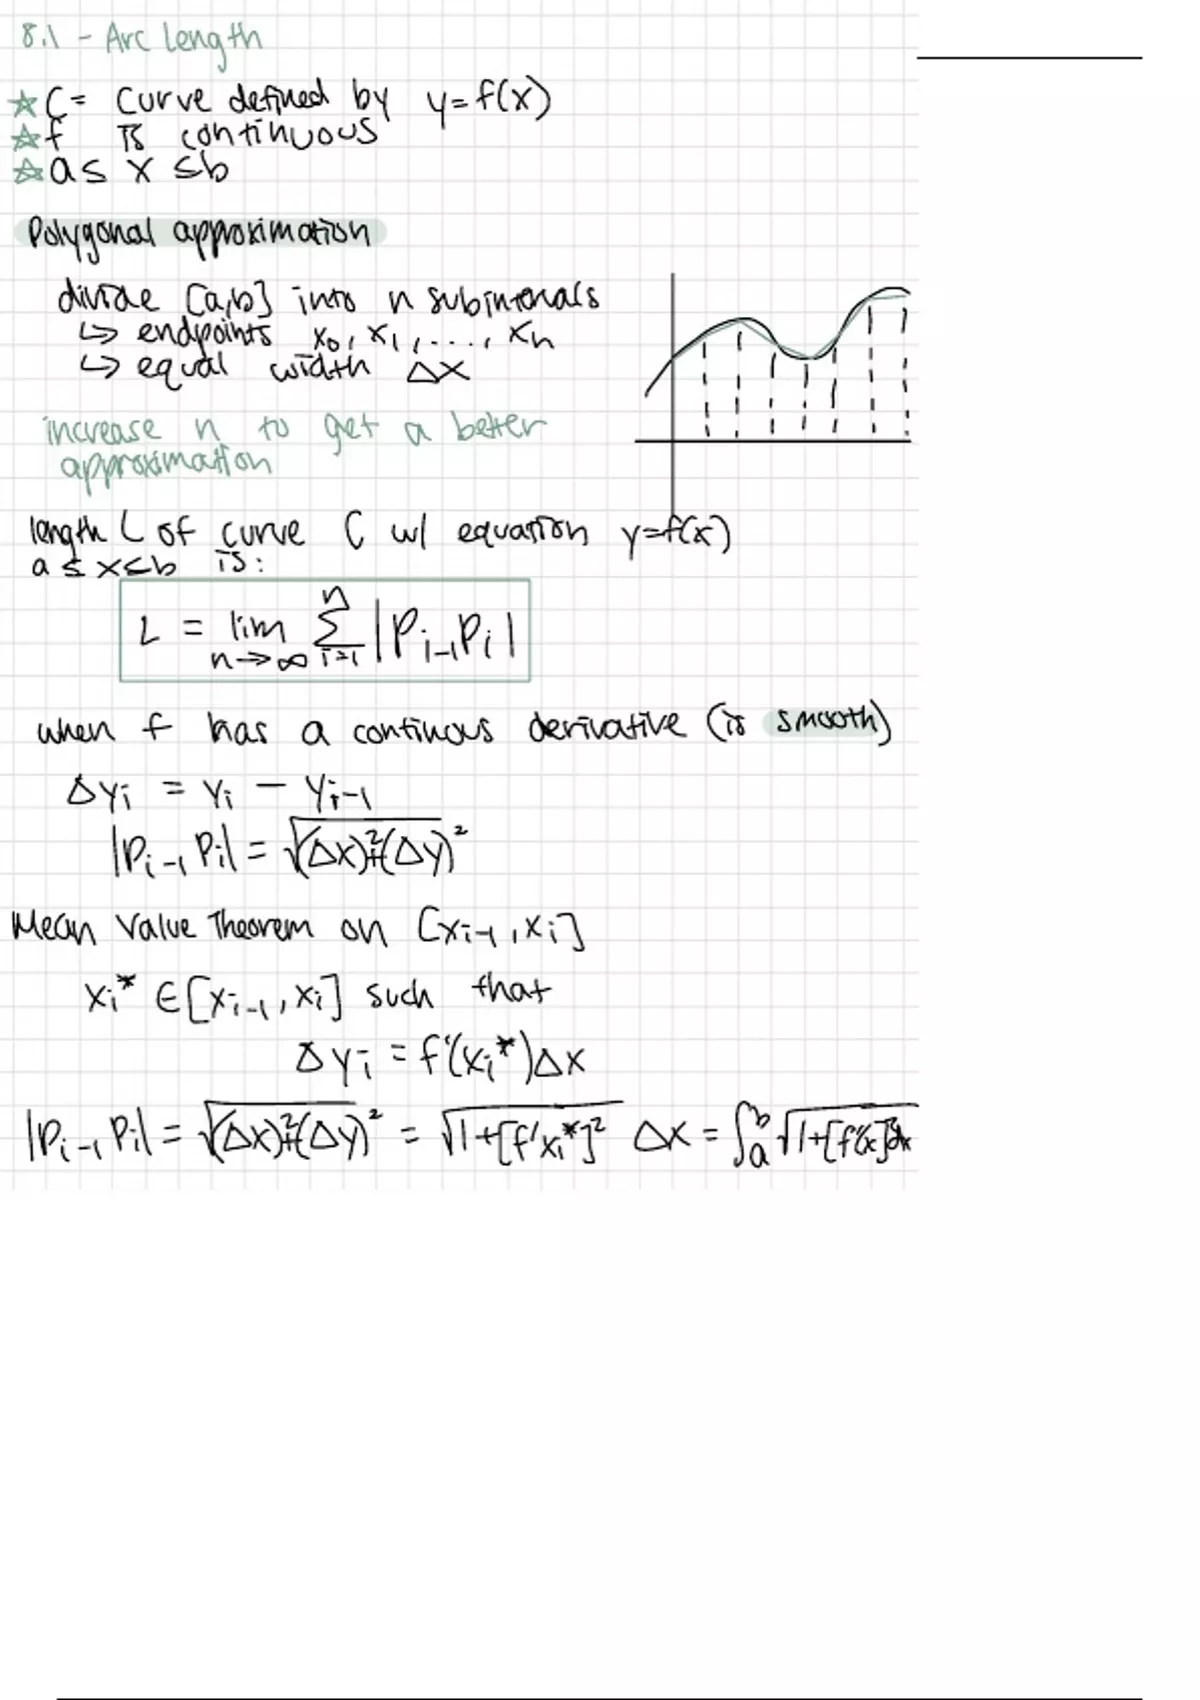 8.1 - Arc Length
☆ C = curve defined by y = f(x)
☆ f is continuous
☆ a ≤ x ≤ b
Polygonal approximation
divide [a,b] into n subintervals
↳ endpoints x₀, x₁, ..., xₙ
↳ equal width Δx
increase n to get a better
approximation
length L of curve C w/ equation y=f(x)
a ≤ x ≤ b is:
L = lim n→∞ Σ i=1 n |Pᵢ₋₁Pᵢ|
when f has a continous derivative (is smooth)
Δyᵢ = yᵢ - yᵢ₋₁
|Pᵢ₋₁ Pᵢ| = √(Δx)²+(Δy)²
Mean Value Theorem on [xᵢ₋₁, xᵢ]
xᵢ* ∈ [xᵢ₋₁, xᵢ] such that
Δyᵢ = f'(xᵢ*)Δx
|Pᵢ₋₁ Pᵢ| = √(Δx)²+(Δy)² = √1+[f'xᵢ*]² Δx = ∫ₐᵇ √1+[f'(x]² dx